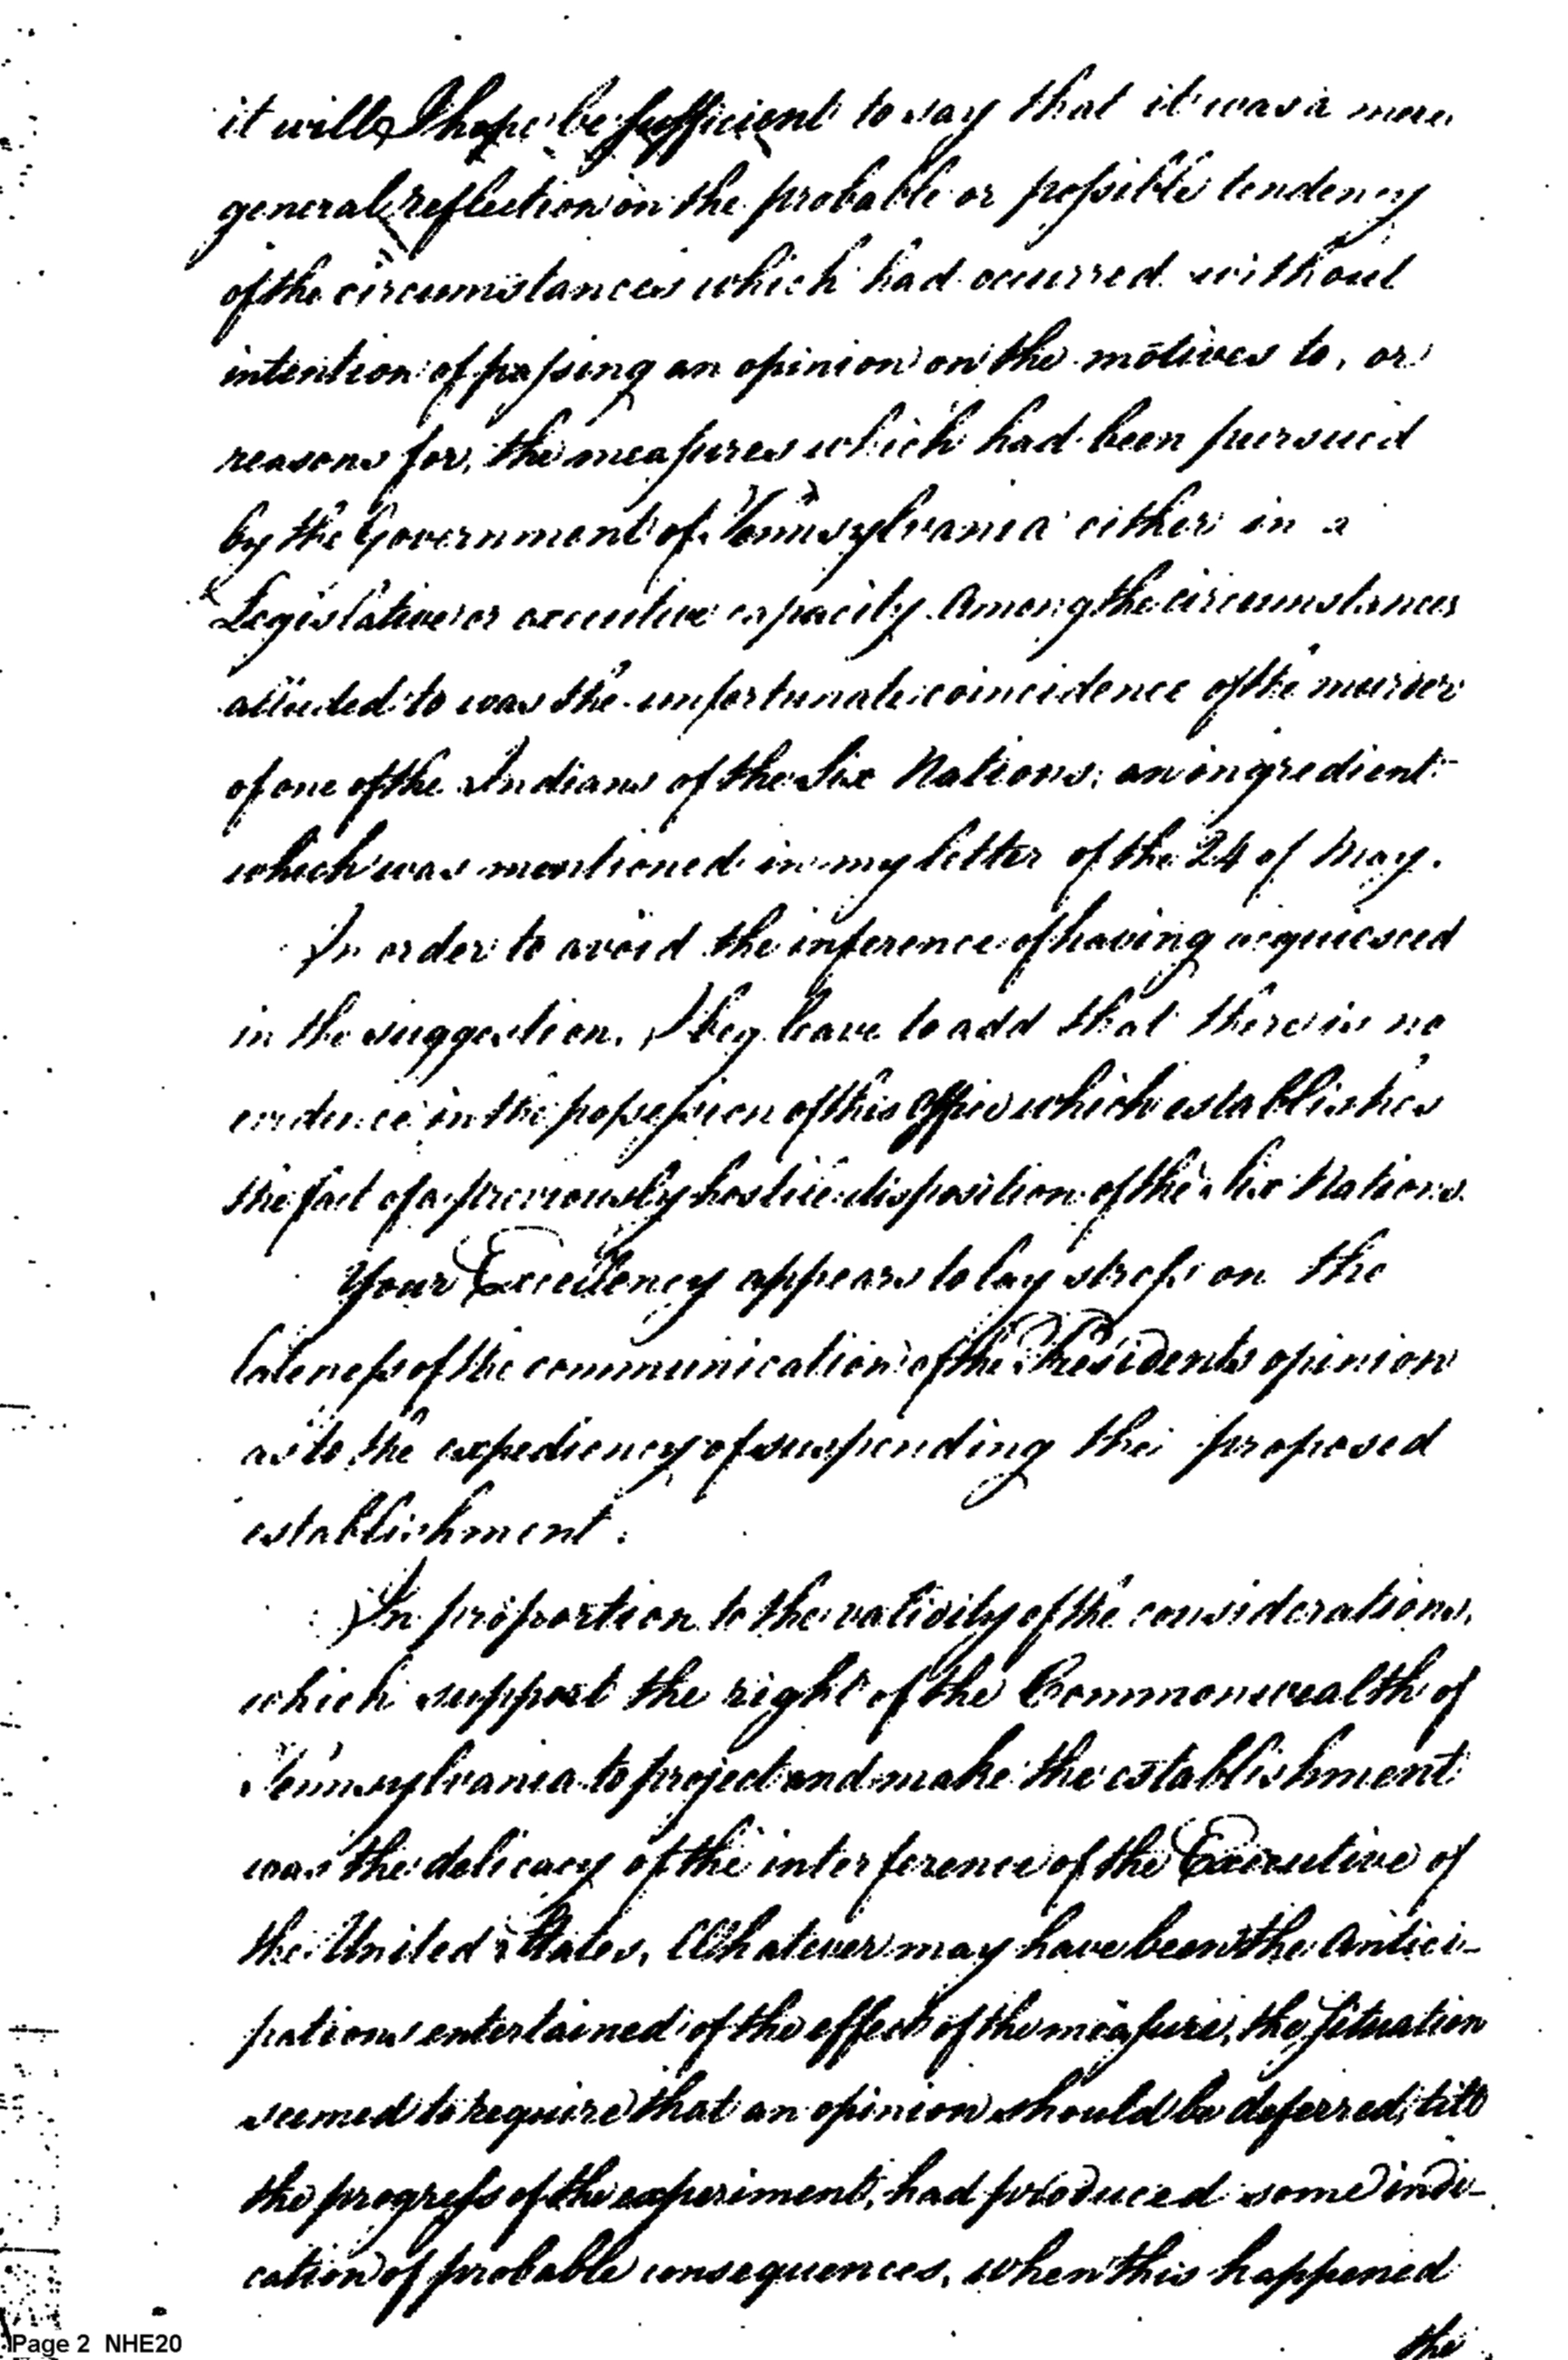 it will, I hope, be sufficient to say that it was a mere
general reflection on the probable or possible tendency
of the circumstances which had occurred without
intention of passing an opinion on the motives to, or
reasons for, the measures which had been pursued
by the Government of Pennsylvania either in a
Legislative or executive capacity. Among the circumstances
alluded to was the unfortunate coincidence of the murder
of one of the Indians of the Six Nations; an ingredient
which was mentioned in my letter of the 24 of May.
In order to avoid the inference of having acquiesced
in the suggestion, I beg leave to add that there is no
evidence in the possession of this Office which establishes
the fact of a previously hostile disposition of the Six Nations.
Your Excellency appears to lay stress on the
lateness of the communication of the Presidents opinion
as to the expediency of suspending the proposed
establishment.
In proportion to the validity of the considerations,
which support the right of the Commonwealth of
Pennsylvania to project and make the establishment
was the delicacy of the interference of the Executive of
the United States, Whatever may have been the Antici-
pations entertained of the effect of the measure, the situation
seemed to require that an opinion should be deferred, till
the progress of the experiment, had produced some indi-
cation of probable consequences, when this happened
the
Page 2 NHE20